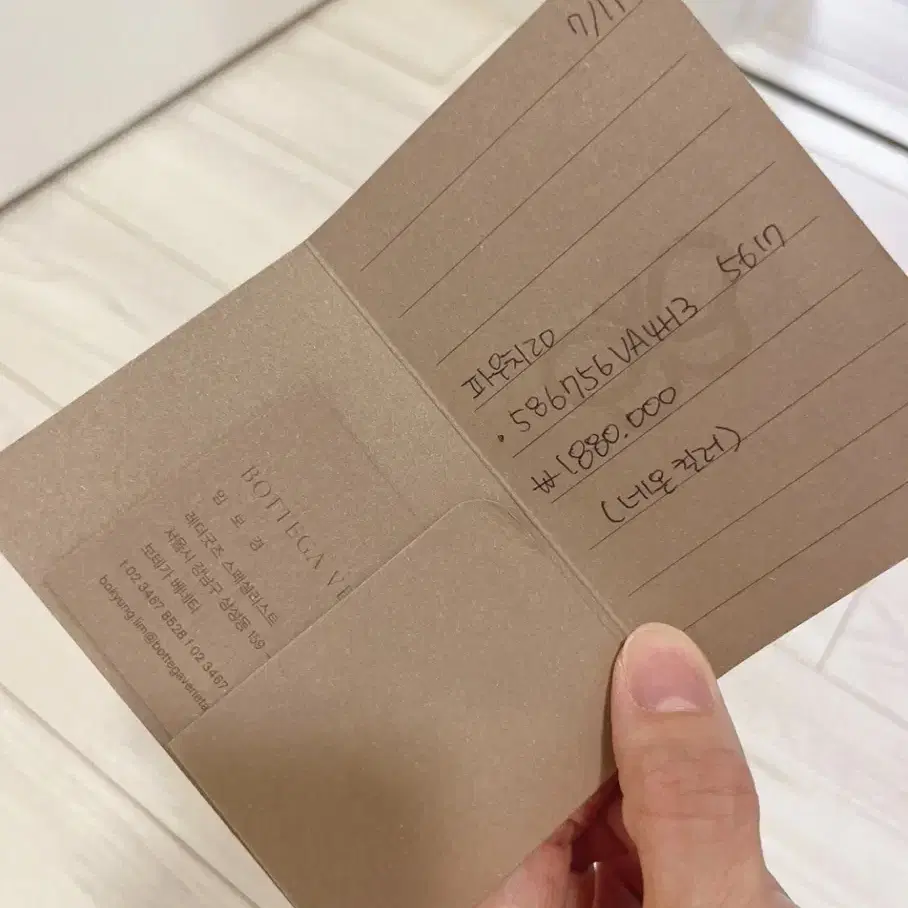 BOTTEGA VE
임 보 경
레더굿즈 스페셜리스트
서울시 강남구 삼성동 159
보테가 베네타
t 02 3467 8528 f 02 3467
bokyung.lim@bottegaveneta
7/11
파우치20
. 586756 VA4H3 5917
₩1,880.000